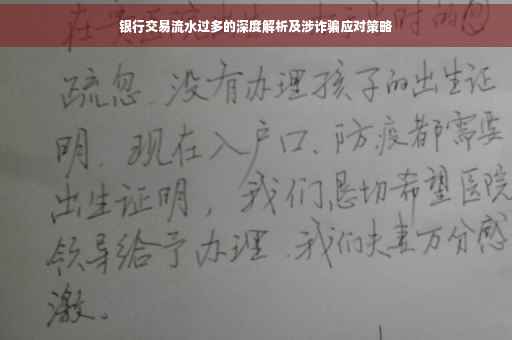 银行交易流水过多的深度解析及涉诈骗应对策略
疏忽、没有办理孩子的出生证
明、现在入户口、防疫都需要
出生证明，我们恳切希望医院
领导给予办理、我们夫妻万分感
激。